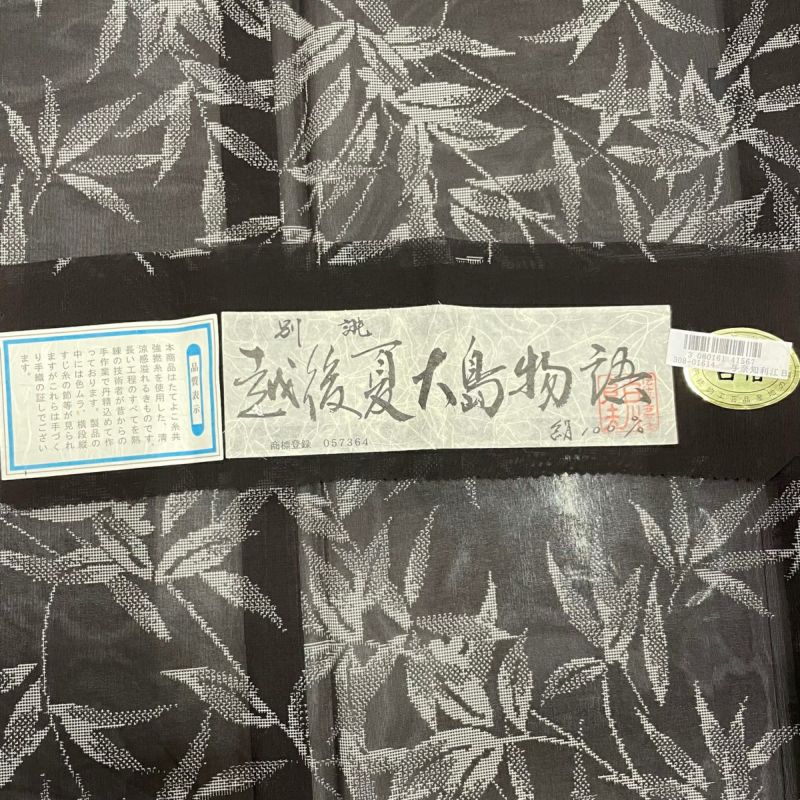 品質表示
本商品はたてよこ糸共
強撚糸を使用した、清
涼感溢れるきものです。
長い工程のすべてを熟
練の技術者が昔からの
手作業で丹精込めて作
っております。製品の
中には色ムラ、横段縦
すじ糸の節等が見られ
ますがこれらは手づく
り手織の証しでござい
ます。
別誂
越後夏大島物語
絹100%
商標登録 057364